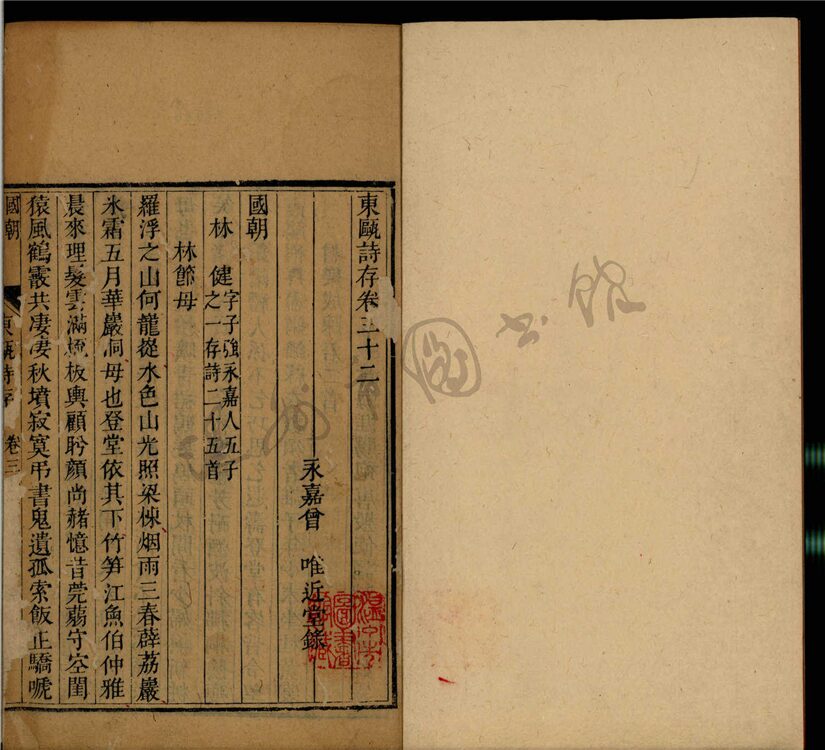 東甌詩存卷三十二
永嘉曾 唯近堂錄
國朝
林 健字子強永嘉人五子
之一存詩二十五首
林節母
羅浮之山何巃嵸水色山光照梁棟烟雨三春薜荔巖
氷霜五月華巖洞母也登堂依其下竹笋江魚伯仲雅
晨來理髮雲滿梳板輿顧盻顏尚赭憶昔莞蒻守空閨
猿風鶴霰共凄凄秋墳寂寞弔書鬼遺孤索飯正驕嗁
國朝
東甌詩存 卷三
圖書